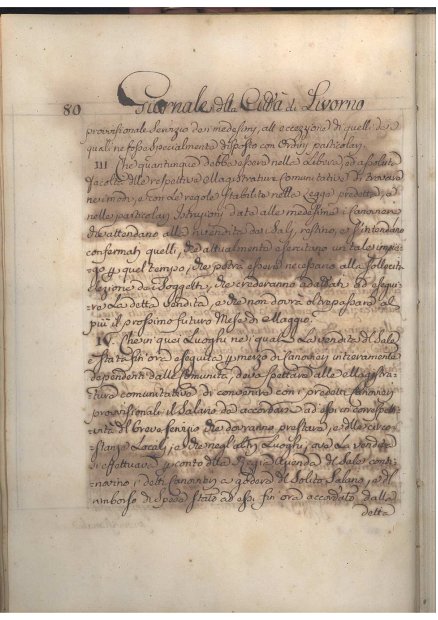 80 Giornale della Città di Livorno
provisionale Servizio dei medesimi, all'eccezzione di quelli dei
quali ne fosse specialmente disposto con Ordini particolari
III Che quantunque debba essere nella libera, ed assoluta
facoltà delle respettive Magistrature Comunitative di trovare
nei modi, e con le regole stabilite nella Legge predetta, e
nelle particolari Istruzioni data alle medesime i Canovieri
che attendano alla vendita dei Sali, restino, e s'intendano
confermati quelli, che attualmente esercitano un tale impie-
go p quel tempo, che potrà essere necessario alla sollecita
elezione de Soggetti, che crederanno adattati ad esegui-
re la detta Vendita, e che non dovrà oltrepassare al
più il prossimo futuro Mese di Maggio.
IV. Che in quei Luoghi nei quali la vendita del Sale
è stata fin ora eseguita p mezzo di Canovieri intieramente
dipendenti dalle Comunità, deva spettare alle Magistra-
ture comunitative di convenire con i predetti Canovieri
provisionali il Salario da accordarsi ad essi in correspet-
tività del breve servizio che dovranno prestare, e delle circo-
stanze Locali, e che negli altri Luoghi, ove la vendita
si effettuava p conto della Regia Azienda del Sale conti-
nuino i detti Canovieri a godere del Solito Salario, e del
rimborso di spese stato ad essi fin ora accordato dalla
detta